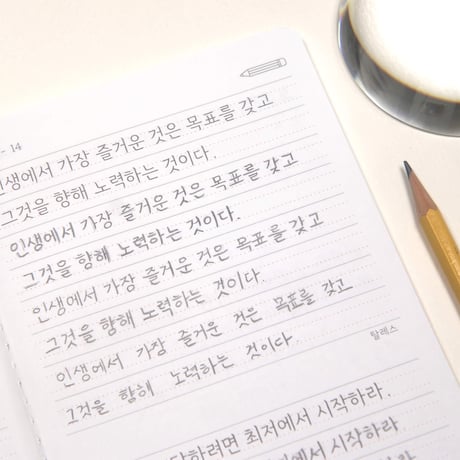 - 14
인생에서 가장 즐거운 것은 목표를 갖고
그것을 향해 노력하는 것이다.
인생에서 가장 즐거운 것은 목표를 갖고
그것을 향해 노력하는 것이다.
인생에서 가장 즐거운 것은 목표를 갖고
그것을 향해 노력하는 것이다.
인생에서 가장 즐거운 것은 목표를 갖고
그것을 향해 노력하는 것이다
탈레스
달하려면 최저에서 시작하라.
에서 시작하라